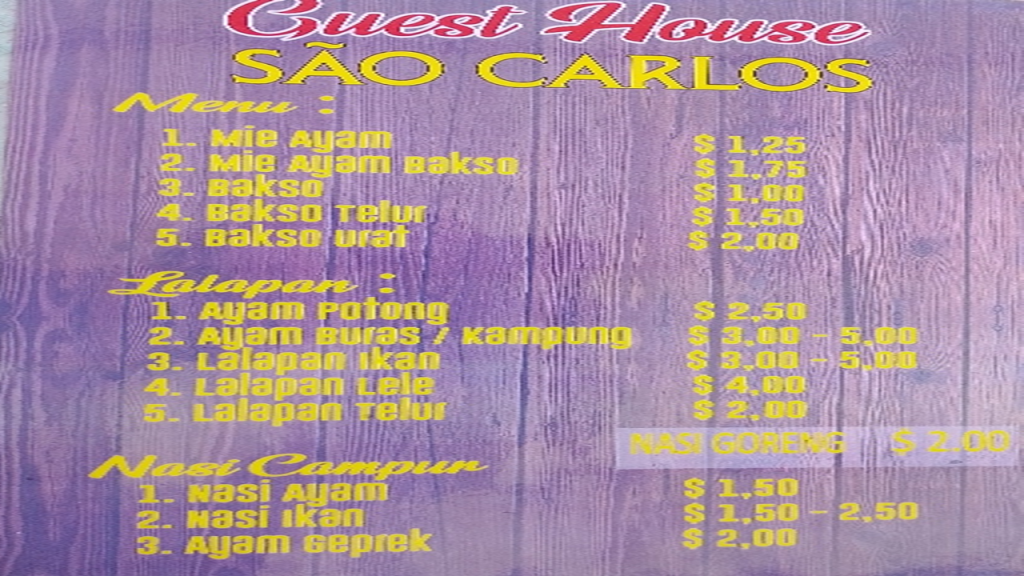 Guest House
SÃO CARLOS
Menu :
1. Mie Ayam $ 1,25
2. Mie Ayam Bakso $ 1,75
3. Bakso $ 1,00
4. Bakso Telur $ 1,50
5. Bakso Urat $ 2,00
Lalapan :
1. Ayam Potong $ 2,50
2. Ayam Buras / Kampung $ 3,00 - 5,00
3. Lalapan Ikan $ 3,00 - 5,00
4. Lalapan Lele $ 4,00
5. Lalapan Telur $ 2,00
NASI GORENG $ 2.00
Nasi Campur
1. Nasi Ayam $ 1,50
2. Nasi Ikan $ 1,50 - 2,50
3. Ayam Geprek $ 2,00